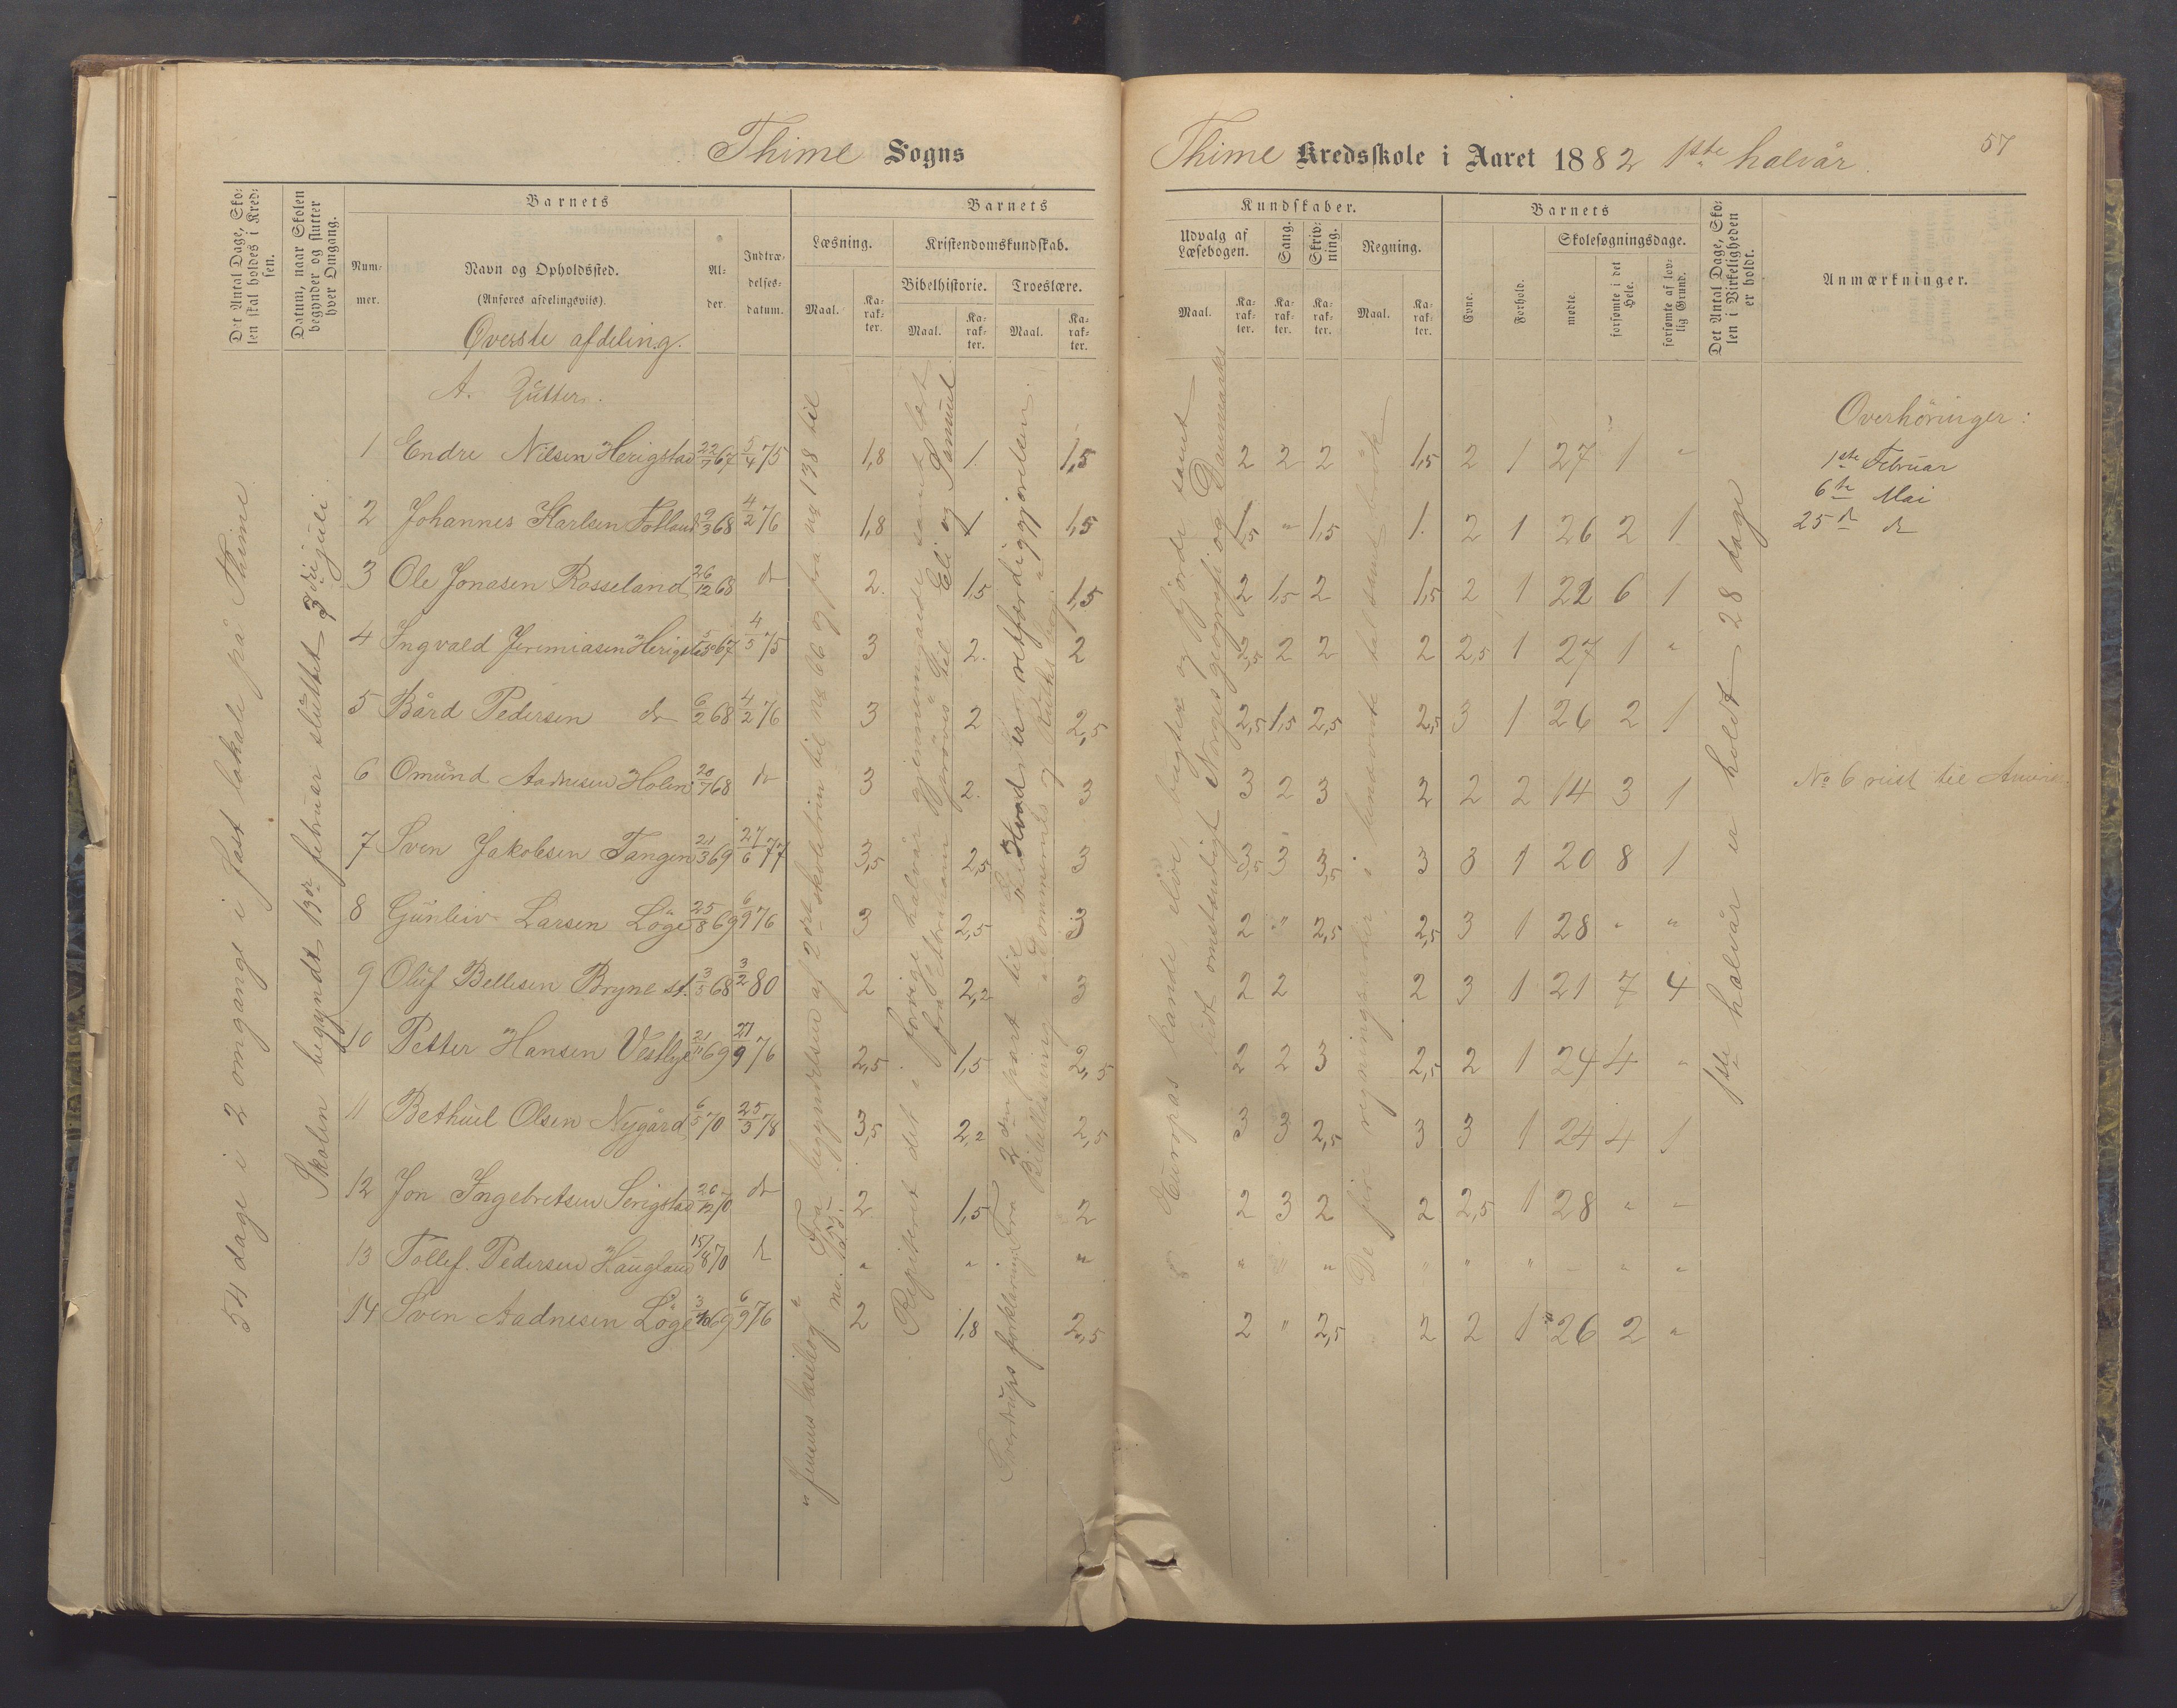 Thime Sogns
Thime Kredsskole i Aaret 1882 1ste halvår.
57
Det Antal Dage, Sko-
len skal holdes i Kred-
sen.
Datum, naar Skolen
begynder og slutter
hver Omgang.
Barnets
Num-
mer.
Navn og Opholdssted.
(Anføres afdelingsvis).
Al-
der.
Indtræ-
delses-
datum.
Barnets
Læsning.
Maal.
Ka-
rak-
ter.
Kristendomskundskab.
Bibelhistorie.
Maal.
Ka-
rak-
ter.
Troeslære.
Maal.
Ka-
rak-
ter.
Kundskaber.
Udvalg af
Læsebogen.
Maal.
Ka-
rak-
ter.
Sang.
Ka-
rak-
ter.
Skriv-
ning.
Ka-
rak-
ter.
Regning.
Maal.
Ka-
rak-
ter.
Barnets
Evne.
Forhold.
Skolesøgningsdage.
mødte.
forsømte i det
Hele.
forsømte af lov-
lig Grund.
Det Antal Dage, Sko-
len i Virkeligheden
er holdt.
Anmærkninger.
Øverste afdeling.
A. Gutter.
54 dage i 2 omgange i fast lokale på Thime.
Skolen begyndt 13de februar sluttet 3die juli.
1 Endre Nilsen Herigstad 22/7 67 5/4 75 1,8 1. 1,5 2 2 2 1,5 2 1 27 1 "
2 Johannes Karlsen Fotland 9/3 68 4/2 76 1,8 1 1,5 1,5 " 1,5 1. 2 1 26 2 1
3 Ole Jonasen Rosseland 26/12 68 do 2. 1,5 1,5 2 1,5 2 1,5 2 1 22 6 1
4 Ingvald Jeremiasen Herigstad 67 4/5 75 3 2. 2 2,5 2 2 2 2,5 1 27 1 "
5 Bård Pedersen do 6/2 68 4/2 76 3 2 2,5 2,5 1,5 2,5 2,5 3 1 26 2 1
6 Omund Aadnesen Holen 20/7 68 do 3 2. 3 3 2 3 2 2 2 14 3 1
7 Sven Jakobsen Tangen 21/3 69 27/6 77 3,5 2,5 3 3,5 3 3,5 3 3 1 20 8 1
8 Gunleiv Larsen Löge 25/8 69 6/9 76 3 2,5 3 2 " 2,5 2,5 3 1 28 " "
9 Oluf Bellesen Bryne st. 3/5 68 3/2 80 2 2,2 3 2 2 2 3 1 21 7 4
10 Petter Hansen Vestlye 21/11 69 21/9 76 2,5 1,5 2,5 2 2 3 2,5 2 1 24 4 "
11 Bethuel Olsen Nygård 6/5 70 25/3 78 3,5 2,2 2,5 3 3 2,5 3 3 1 24 4 1
12 Jon Ingebretsen Serigstad 26/12 70 do 2 1,5 2 2 3 2 2 2,5 1 28 " "
13 Tollef Pedersen Haugland 15/8 70 do " " " " " " " " " " " "
14 Sven Aadnesen Löge 3/10 69 6/9 76 2 1,8 2,5 2 " 2,5 2 2 1 26 2 "
"Jensens læsebog" Fra begyndelsen af 2det skoletrin til No 66 og fra No 138 til
no. 155.
Repiteret det i forrige halvår gjennemgåede samt læst
fra Abraham til Eli og Samuel.
Sverdrups forklaring: Fra 2den part til Hvad er retfærdiggjørelsen.
Europas lande, elve, bugter og fjorde samt
omstændeligt Norges geografi og Danmarks
De fire regningsarter i hundsomte tal samt brök
1ste halvår er holdt 28 dage
Overhöringer:
1ste Februar
6te Mai
25de do
No 6 reist til